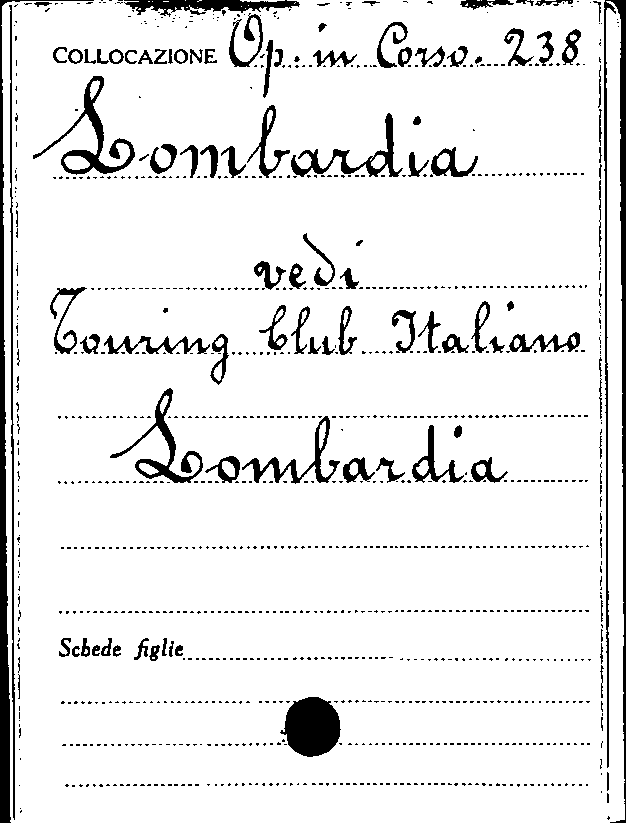 COLLOCAZIONE Op. in Corso. 238
Lombardia
vedi
Touring Club Italiano
Lombardia
Schede figlie